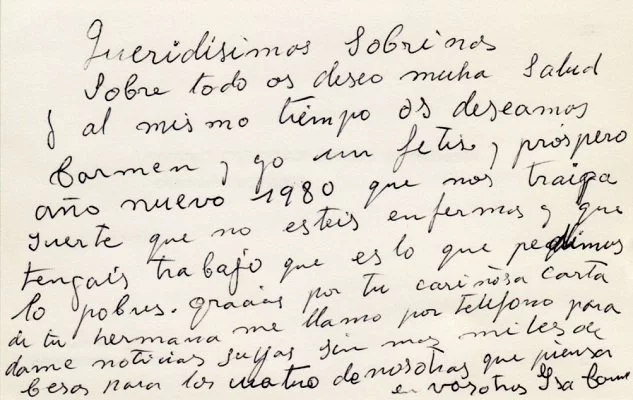 Queridísimos Sobrinos
Sobre todo os deseo mucha Salud
y al mismo tiempo os deseamos
Carmen y yo un feliz y próspero
año nuevo 1980 que nos traiga
suerte que no esteis enfermos y que
tengais trabajo que es lo que pedimos
lo pobres. gracias por tu cariñosa carta
di tu hermana me llamo por teléfono para
dame noticias suyas sin mas miles de
besos para los cuatro de nosotras que piensa
en vosotros Isa